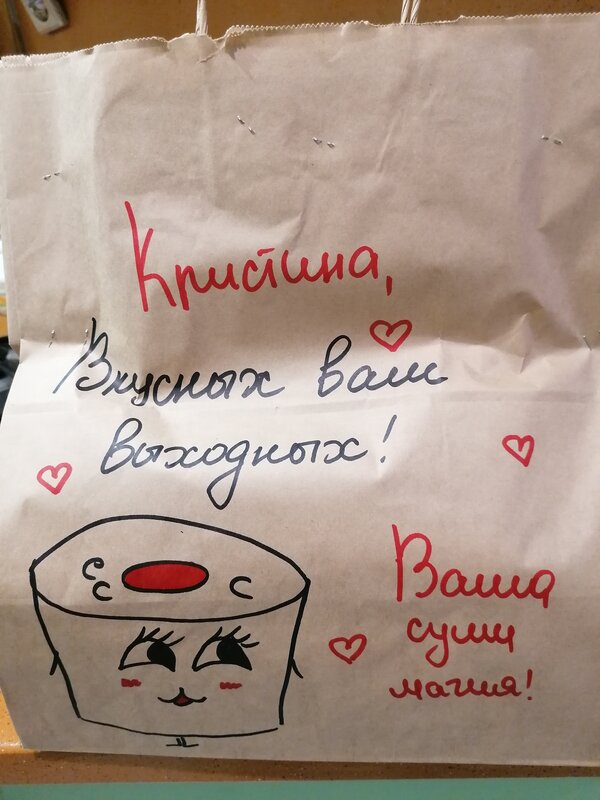 Кристина,
Вкусных вам
выходных!
Ваша
суши
магия!